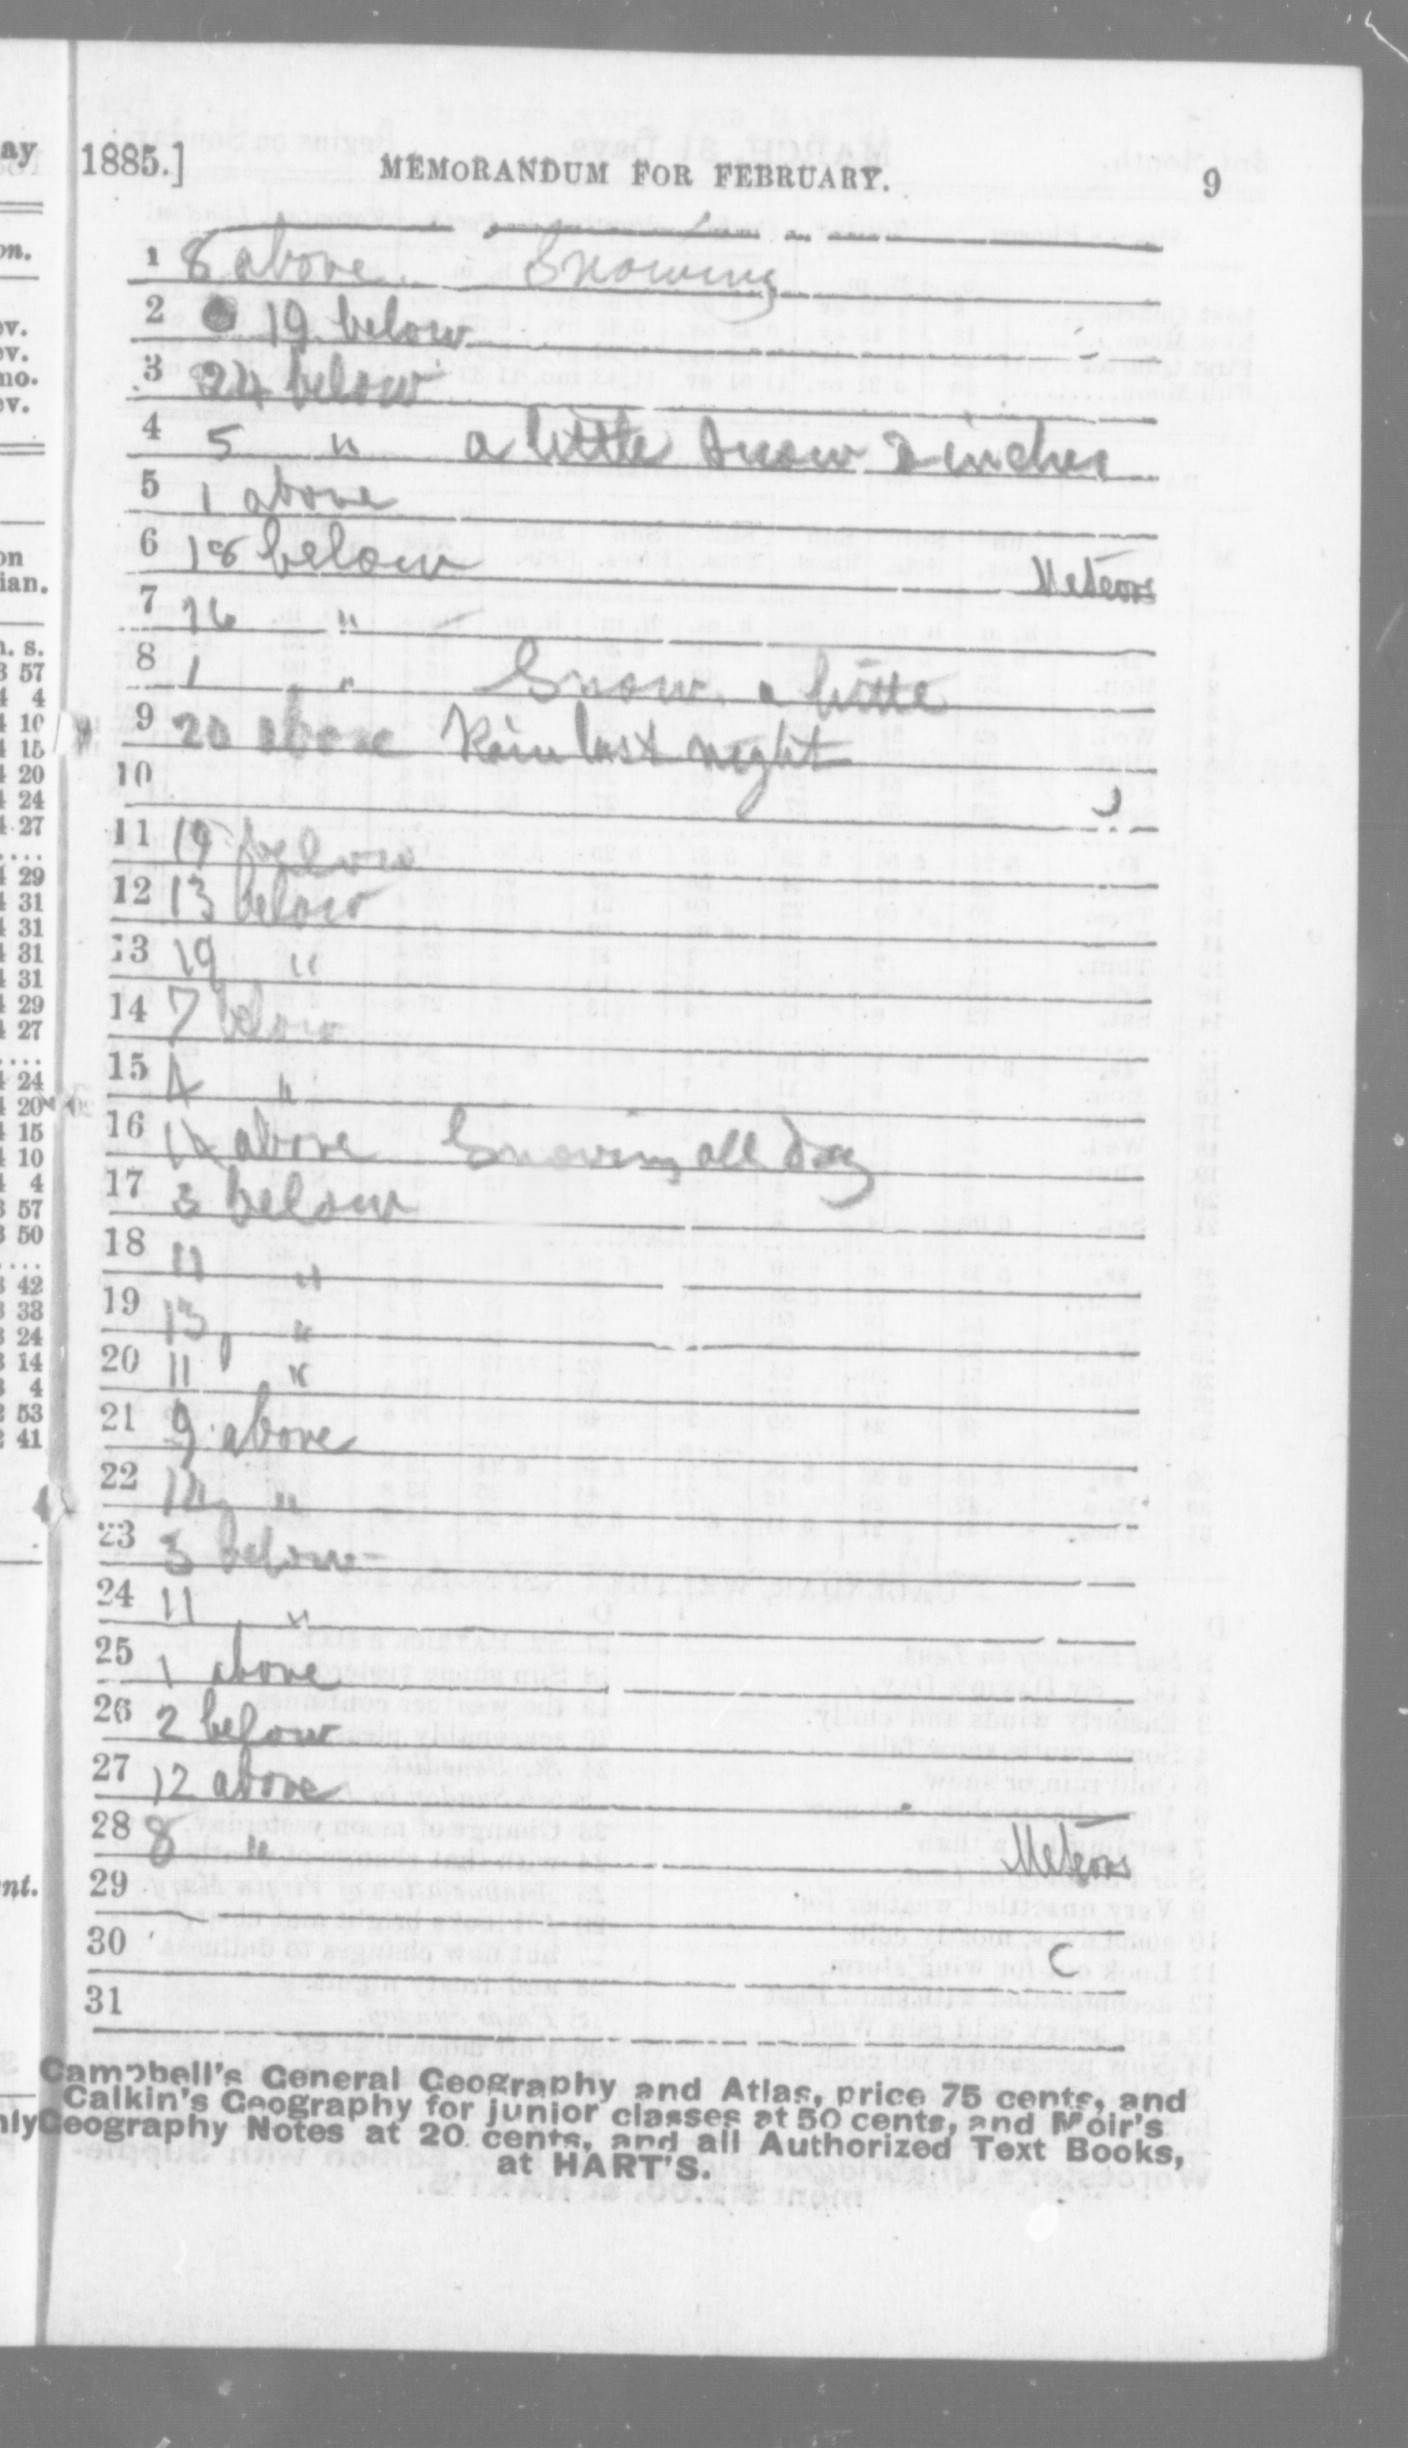 1885.] MEMORANDUM FOR FEBRUARY. 9
1 8 above Snowing
2 19 below
3 24 below
4 5 " a little Snow 2 inches
5 1 above
6 18 below Meteors
7 16 "
8 1 " Snow a little
9 20 above Rain last night
10
11 19 below
12 13 below
13 19 "
14 7 below
15 4 "
16 14 above Snowing all day
17 3 below
18 11 "
19 13 "
20 11 "
21 9 above
22 "
23 3 below
24 11 "
25 1 above
26 2 below
27 12 above
28 8 " Meteors
29
30
31
Campbell's General Geography and Atlas, price 75 cents, and
Calkin's Geography for junior classes at 50 cents, and Moir's
Geography Notes at 20 cents, and all Authorized Text Books,
at HART'S.